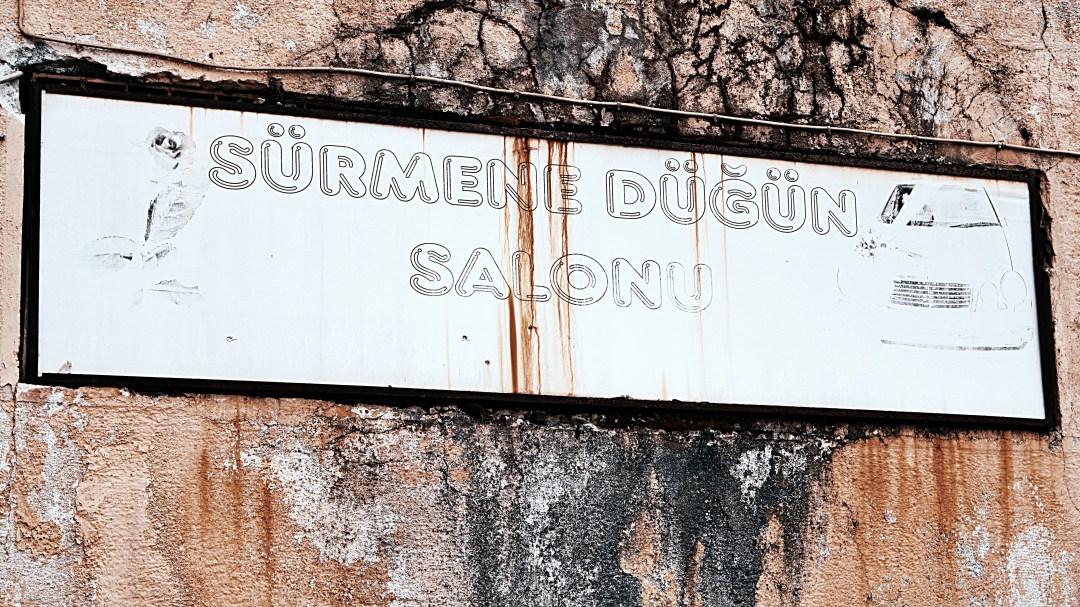 SÜRMENE DÜĞÜN
SALONU